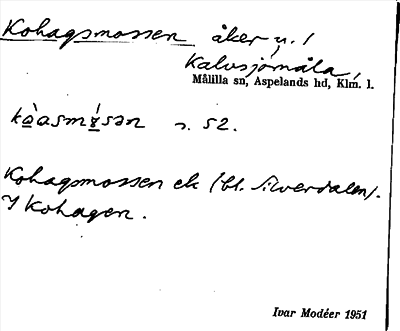 Kohagsmossen åker n. 1
Kalvsjömåla,
Målilla sn, Aspelands hd, Klm. l.
s. 52.
Kohagsmossen ek (bl. Silverdalen).
I Kohagen.
Ivar Modéer 1951